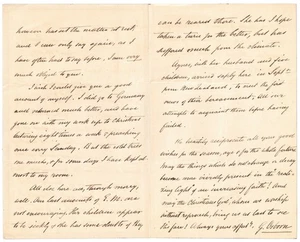 however has set the matter at rest
and I can only say again, as I
have often had to say before, I am very
much obliged to you.
I wish I could give you a good
account of myself. I did go to Germany
and returned much better, and have
gone on with my work up to Christmas
lecturing eight times a week & preaching
one every Sunday. But the cold tries
me much, & for some days I have kept at
most to my room.
All else here are, through mercy,
well. Our last accounts of E. M. are
not encouraging. Her children appear
to be sickly & she has some doubt if they
can be reared there. She has I hope
taken a turn for the better, but has
suffered much from the climate.
Agnes, with her husband and five
children, arrived safely here in Sept.
from New Zealand, to the visit the first
days of their bereavement; all our
attempts to acquaint them before having
failed.
We heartily reciprocate all your good
wishes for the season, ago & for the whole future.
May the things which do not change in decay
become more vividly present in the reali-
zing light of an increasing faith! And
may the Chief Shepherd, whom we worship
without reproach, bring us at last to see
His face! Always yours affect. G. Osborn